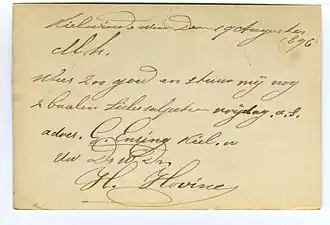 Kielwindeweer den 19 Augustus
1896
M.h.
Wees zoo goed en stuur mij nog
2 baalen vrijdag a.s.
adres. G. Ensing Kiel.w
Uw Dw Dr
H. Hovinc